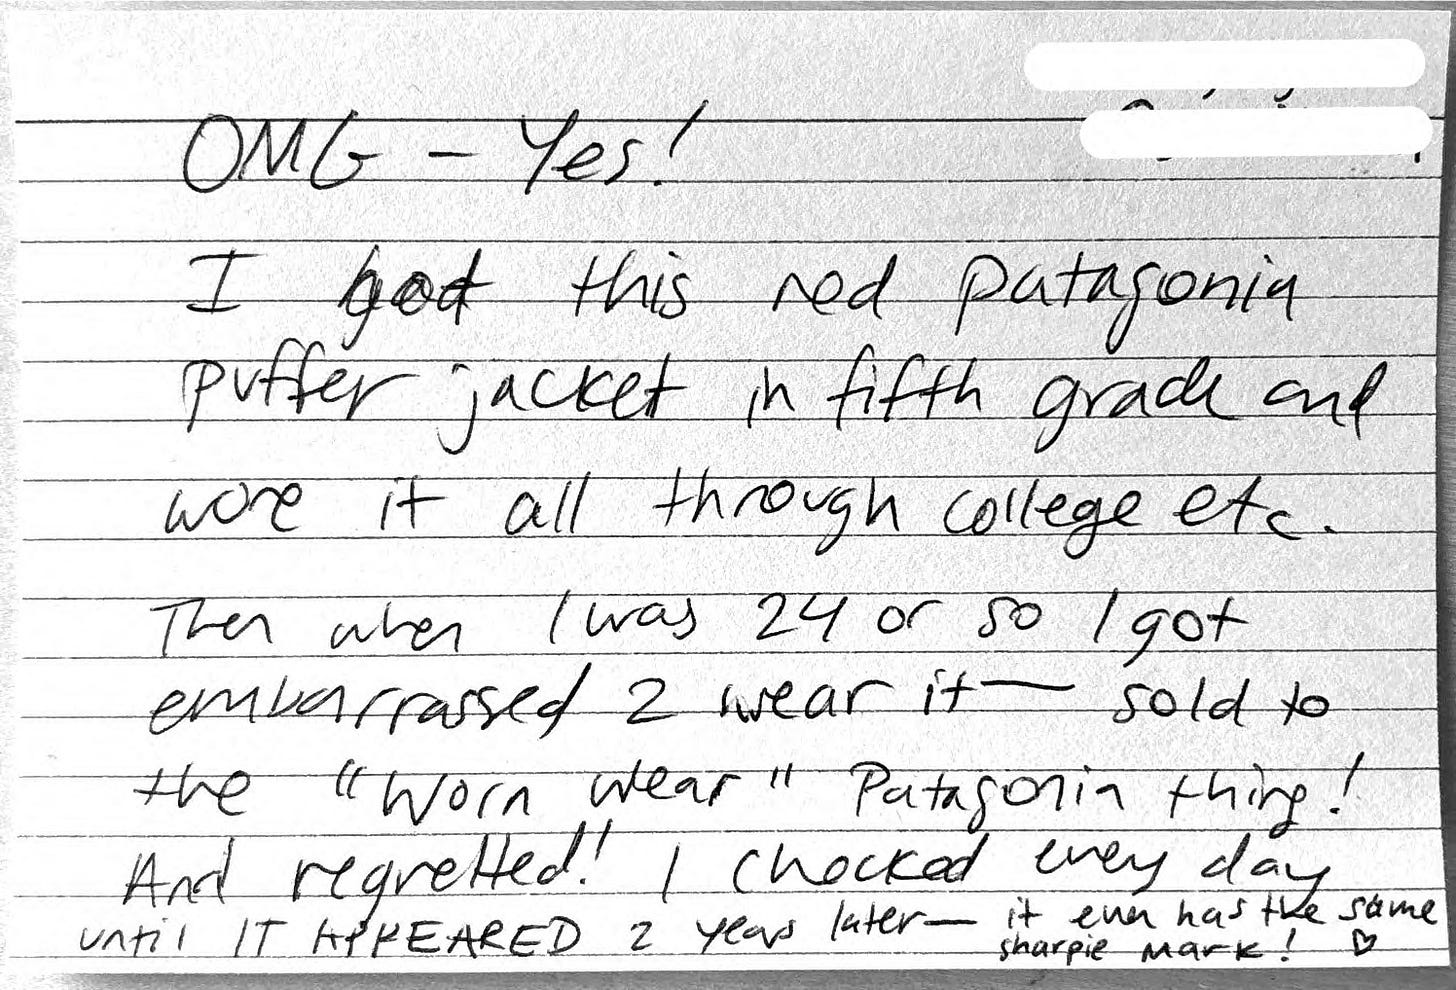 OMG - Yes!
I got this red patagonia
puffer jacket in fifth grade and
wore it all through college etc.
Then when I was 24 or so I got
embarrassed 2 wear it — sold to
the "Worn wear" Patagonia thing!
And regretted! I checked every day
until IT APPEARED 2 years later — it even has the same
sharpie mark! ♡